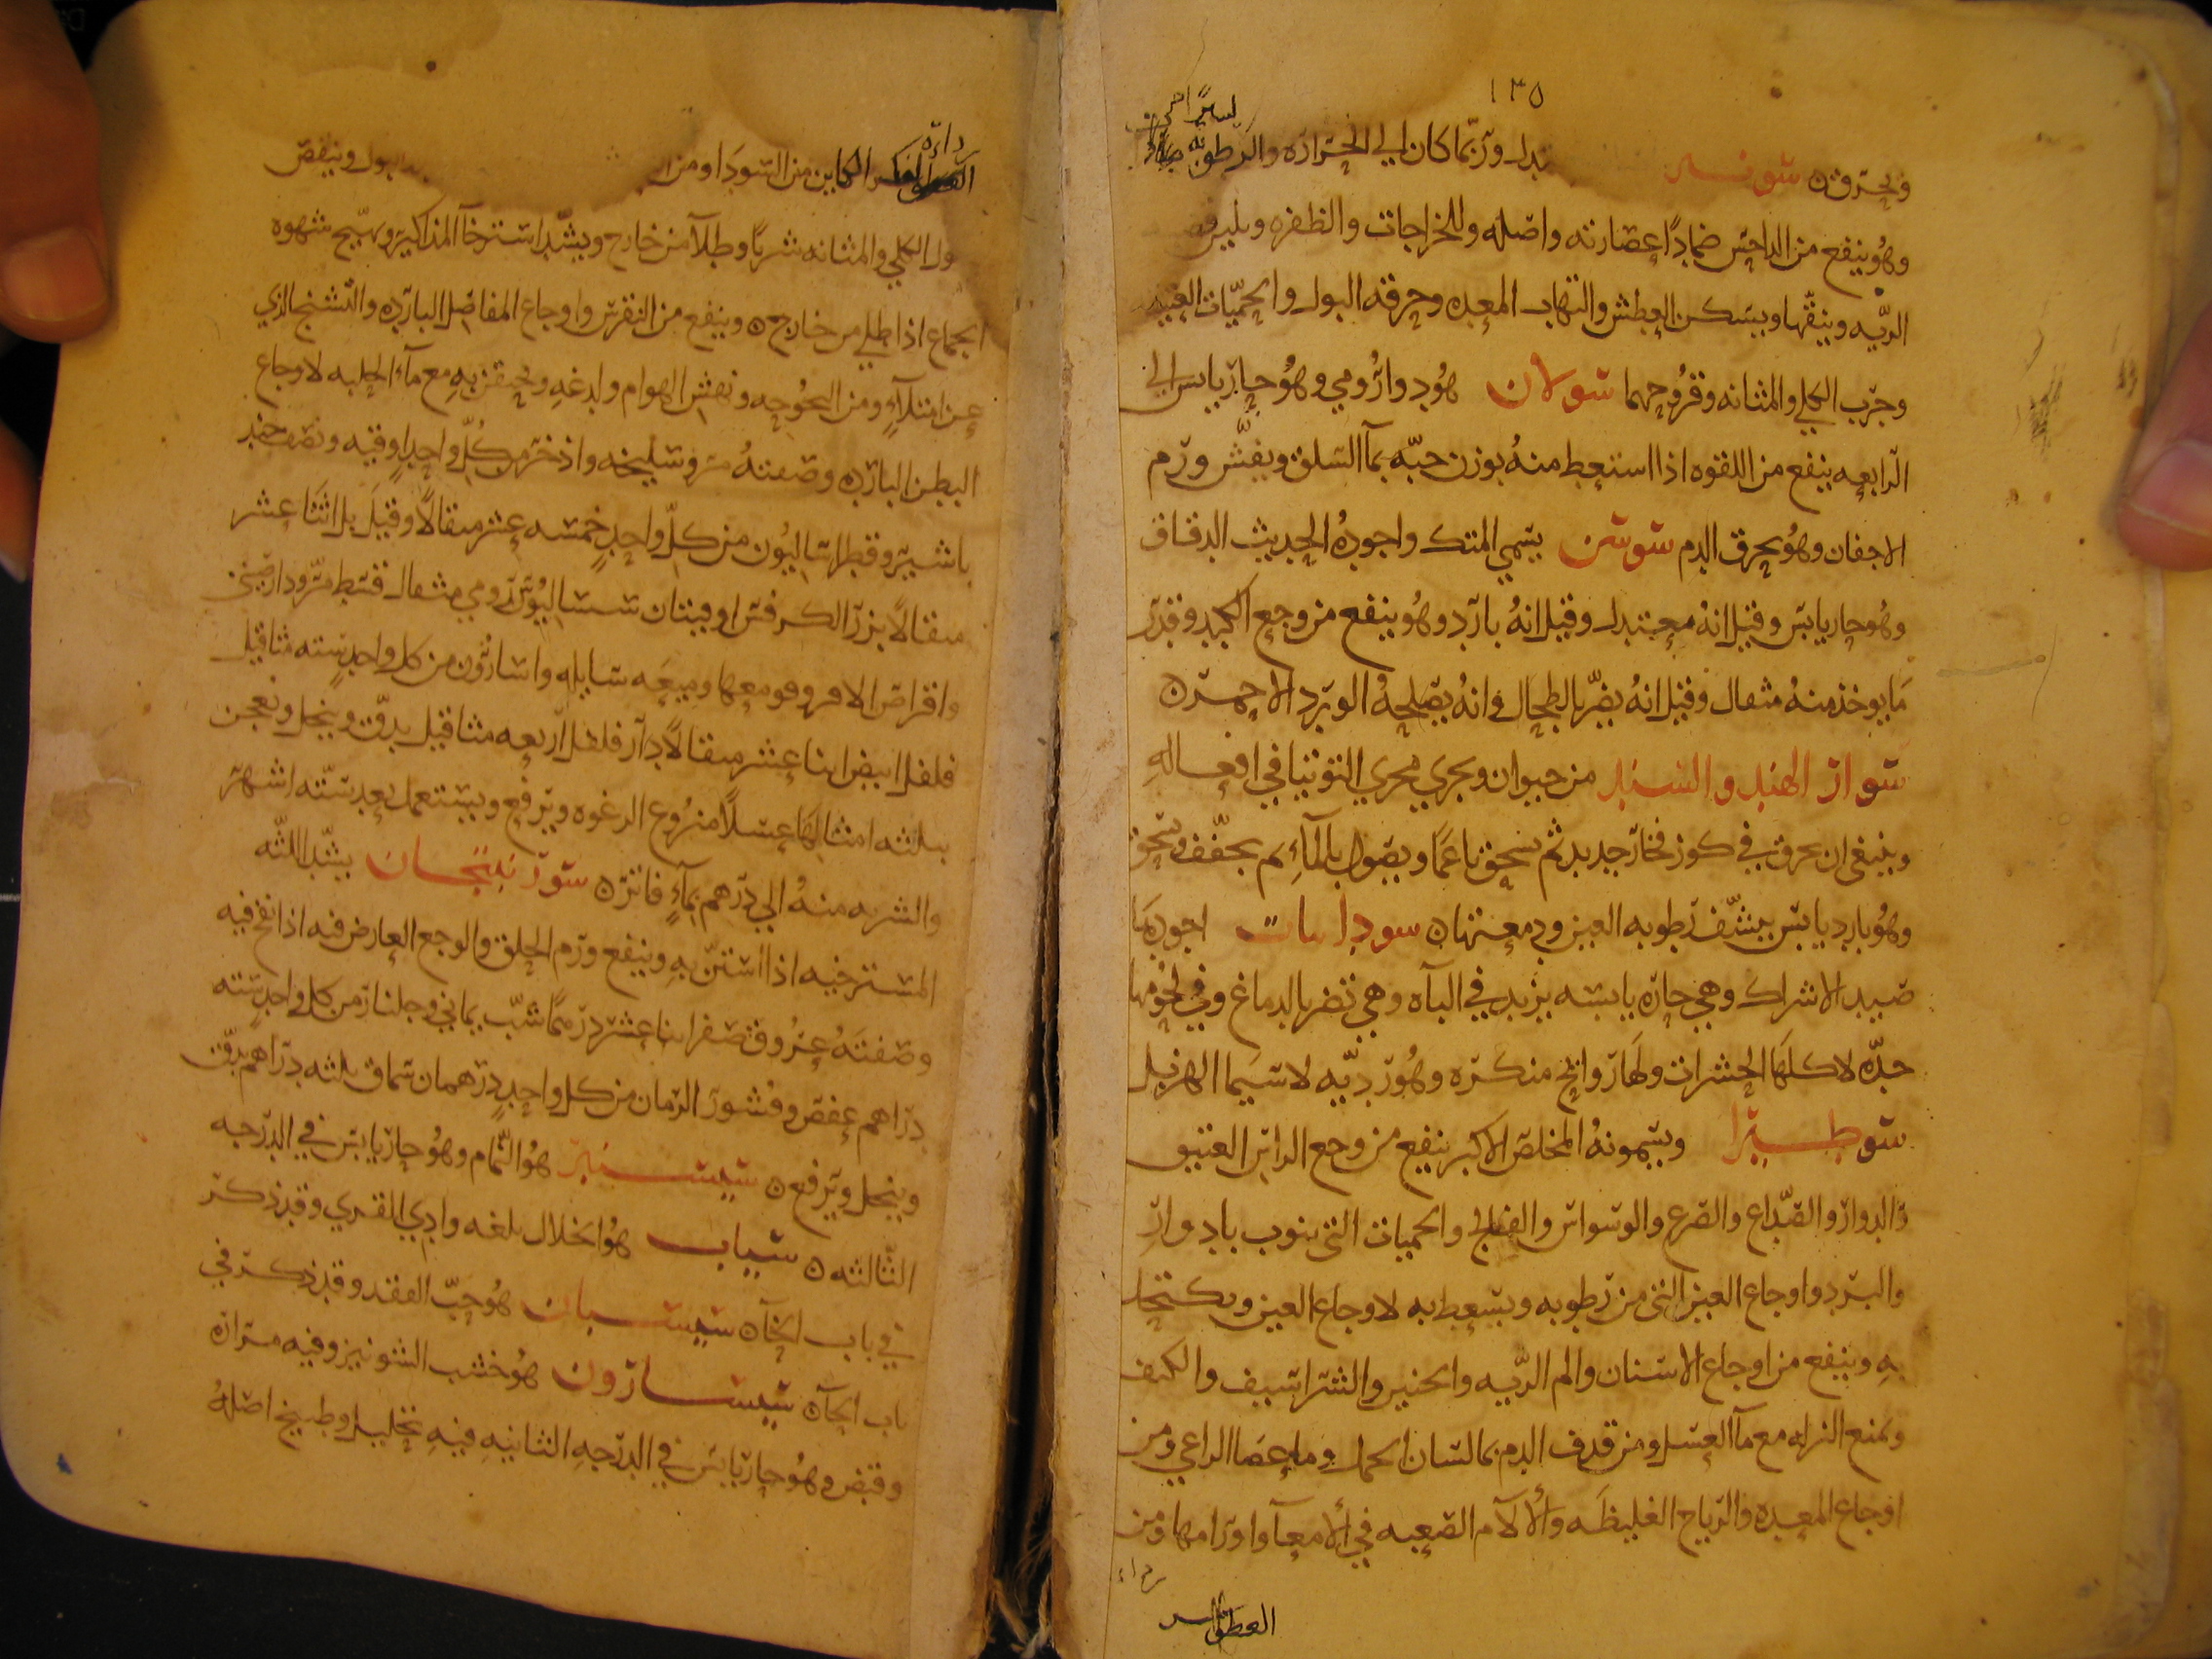 ١٣٥
يسيرًا
وبحرقه سوس بدل وربما كان الي الحراره والرطوبه
وهو ينفع من الداحس ضمادًا عصارته واصله وللخراجات والظفره ويلين قصبه
الريّه وينقيها ويسكن العطش والتهاب المعده وحرقه البول والحميّات العتيقه
وجرب الكلي والمثانه وقروحهما سولان هو دوا رومي وهو حار يابس الي
الرابعه ينفع من اللقوه اذا استعط منه بوزن حبّه بمآ السلق ويفشّ ورم
الاجفان وهو يحرق الدم سوس يسمي المتك واجوده الحديث الدقاق
وهو حار يابس وقيل انه معتدل وقيل انه بارد وهو ينفع من وجع الكبد وقدر
ما يوخذ منه مثقال وقيل انه يضرّ بالطحال وانه يصلحه الورد الاحمر ه
سوار الهند والسند من حيوان ويجري مجري التوتيا في افعاله
وينبغي ان يحرق في كوز فخار جديد ثم يسحق ناعمًا ويصول بالمآءِ ثم يجفّف ويسحق
وهو بارد يابس ينشّف رطوبه العين ودمعتها ه سودانيات اجودها
صيد الاشراك وهي حاره يابسه يزيد في الباه وهي تضر بالدماغ وفي لحومها
حدّه لاكلها الحشرات ولها روائح منكره وهو رديّه لا سيما الهزيل
سوطيرا ويسمونه المخلص الاكبر ينفع من وجع الراس العتيق
والدوار والصّداع والصرع والوسواس والفالج والحميات التي ينوب بادوار
والبرد واوجاع العين التي من رطوبه ويسعط به لاوجاع العين ويكتحل
به وينفع من اوجاع الاسنان والم الريّه والجنبين والشراسيف والكتف
ويمنع النزله مع مآ العسل ومن قذف الدم بمآ لسان الحمل وماء عصا الراعي ومن
اوجاع المعده والرياح الغليظه والآلام الصعبه في الامعآ واورامها ومن
رداءه
الكاين من السودا ومن البول وينفض
ول الكلي والمثانه شربًا وطلآ من خارج ويشدّ استرخآ المذاكير ويهيّج شهوه
الجماع اذا طلي من خارج ه وينفع من النقرس واوجاع المفاصل البارده والتشنج الذي
عن امتلآءٍ ومن البحوحه ونهش الهوام ولدغه ويحتقن به مع مآء الحلبه لاوجاع
البطن البارده وصفته مر وسليخه واذخر من كلّ واحدٍ اوقيه ونصف جند
باشير وقطراساليون من كلّ واحدٍ خمسه عشر مثقالًا وقيل بل اثنا عشر
مثقالًا بزر الكرفس اوقيتان سساليوس رومي مثقال قسط مرّ ودارصيني
واقراص الافروفومعها وميعه سايله واسارون من كل واحدٍ سته مثاقيل
فلفل ابيض اثنا عشر مثقالًا دار فلفل اربعه مثاقيل يدقّ وينخل ويعجن
بثلثه امثالها عسلًا منزوع الرغوه ويرفع ويستعمل بعد ستّه اشهر
والشربه منه الي درهم بمآءٍ فاتر ه سورنجان يشدّ اللثه
المسترخيه اذا استنّ به وينفع ورم الحلق والوجع العارض فيه اذا نفخ فيه
وصفته عروق صفر اثنا عشر درهمًا شبّ يماني وجلنار من كل واحدٍ سته
دراهم عفص وقشور الرمان من كل واحدٍ درهمان سماق ثلثه دراهم يدقّ
وينخل ويرفع ه سيسنبر هو النّمام وهو حار يابس في الدرجه
الثّالثه ه سياب هو الخلال بلغه وادي القري وقد ذكر
في باب الخآ ه سيسبان هو حبّ الفقد وقد ذكر في
باب الحآ ه سيسارون هو خشب الشونيز وفيه مراره
وقبض وهو حار يابس في الدرجه الثانيه فيه تحليل وطبيخ اصله